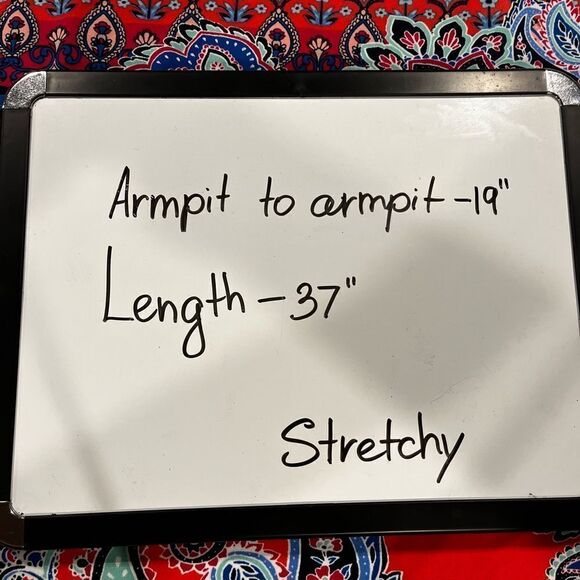 Armpit to armpit - 19"
Length - 37"
Stretchy